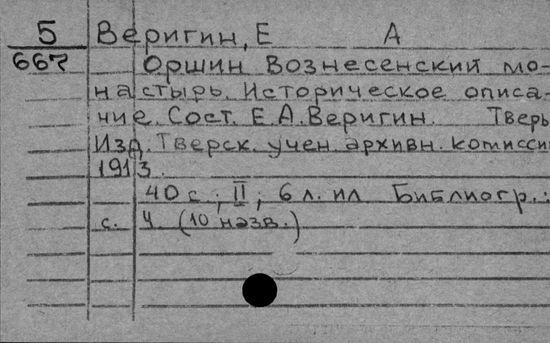 5 Веригин, Е А
667 Оршин Вознесенский мо-
настырь. Историческое описа-
ние. Сост. Е.А. Веригин. Тверь
Изд. Тверск. учен. архивн. комисси
1913.
40 с.; II; 6 л. ил Библиогр.:
с. 4. (10 назв.)